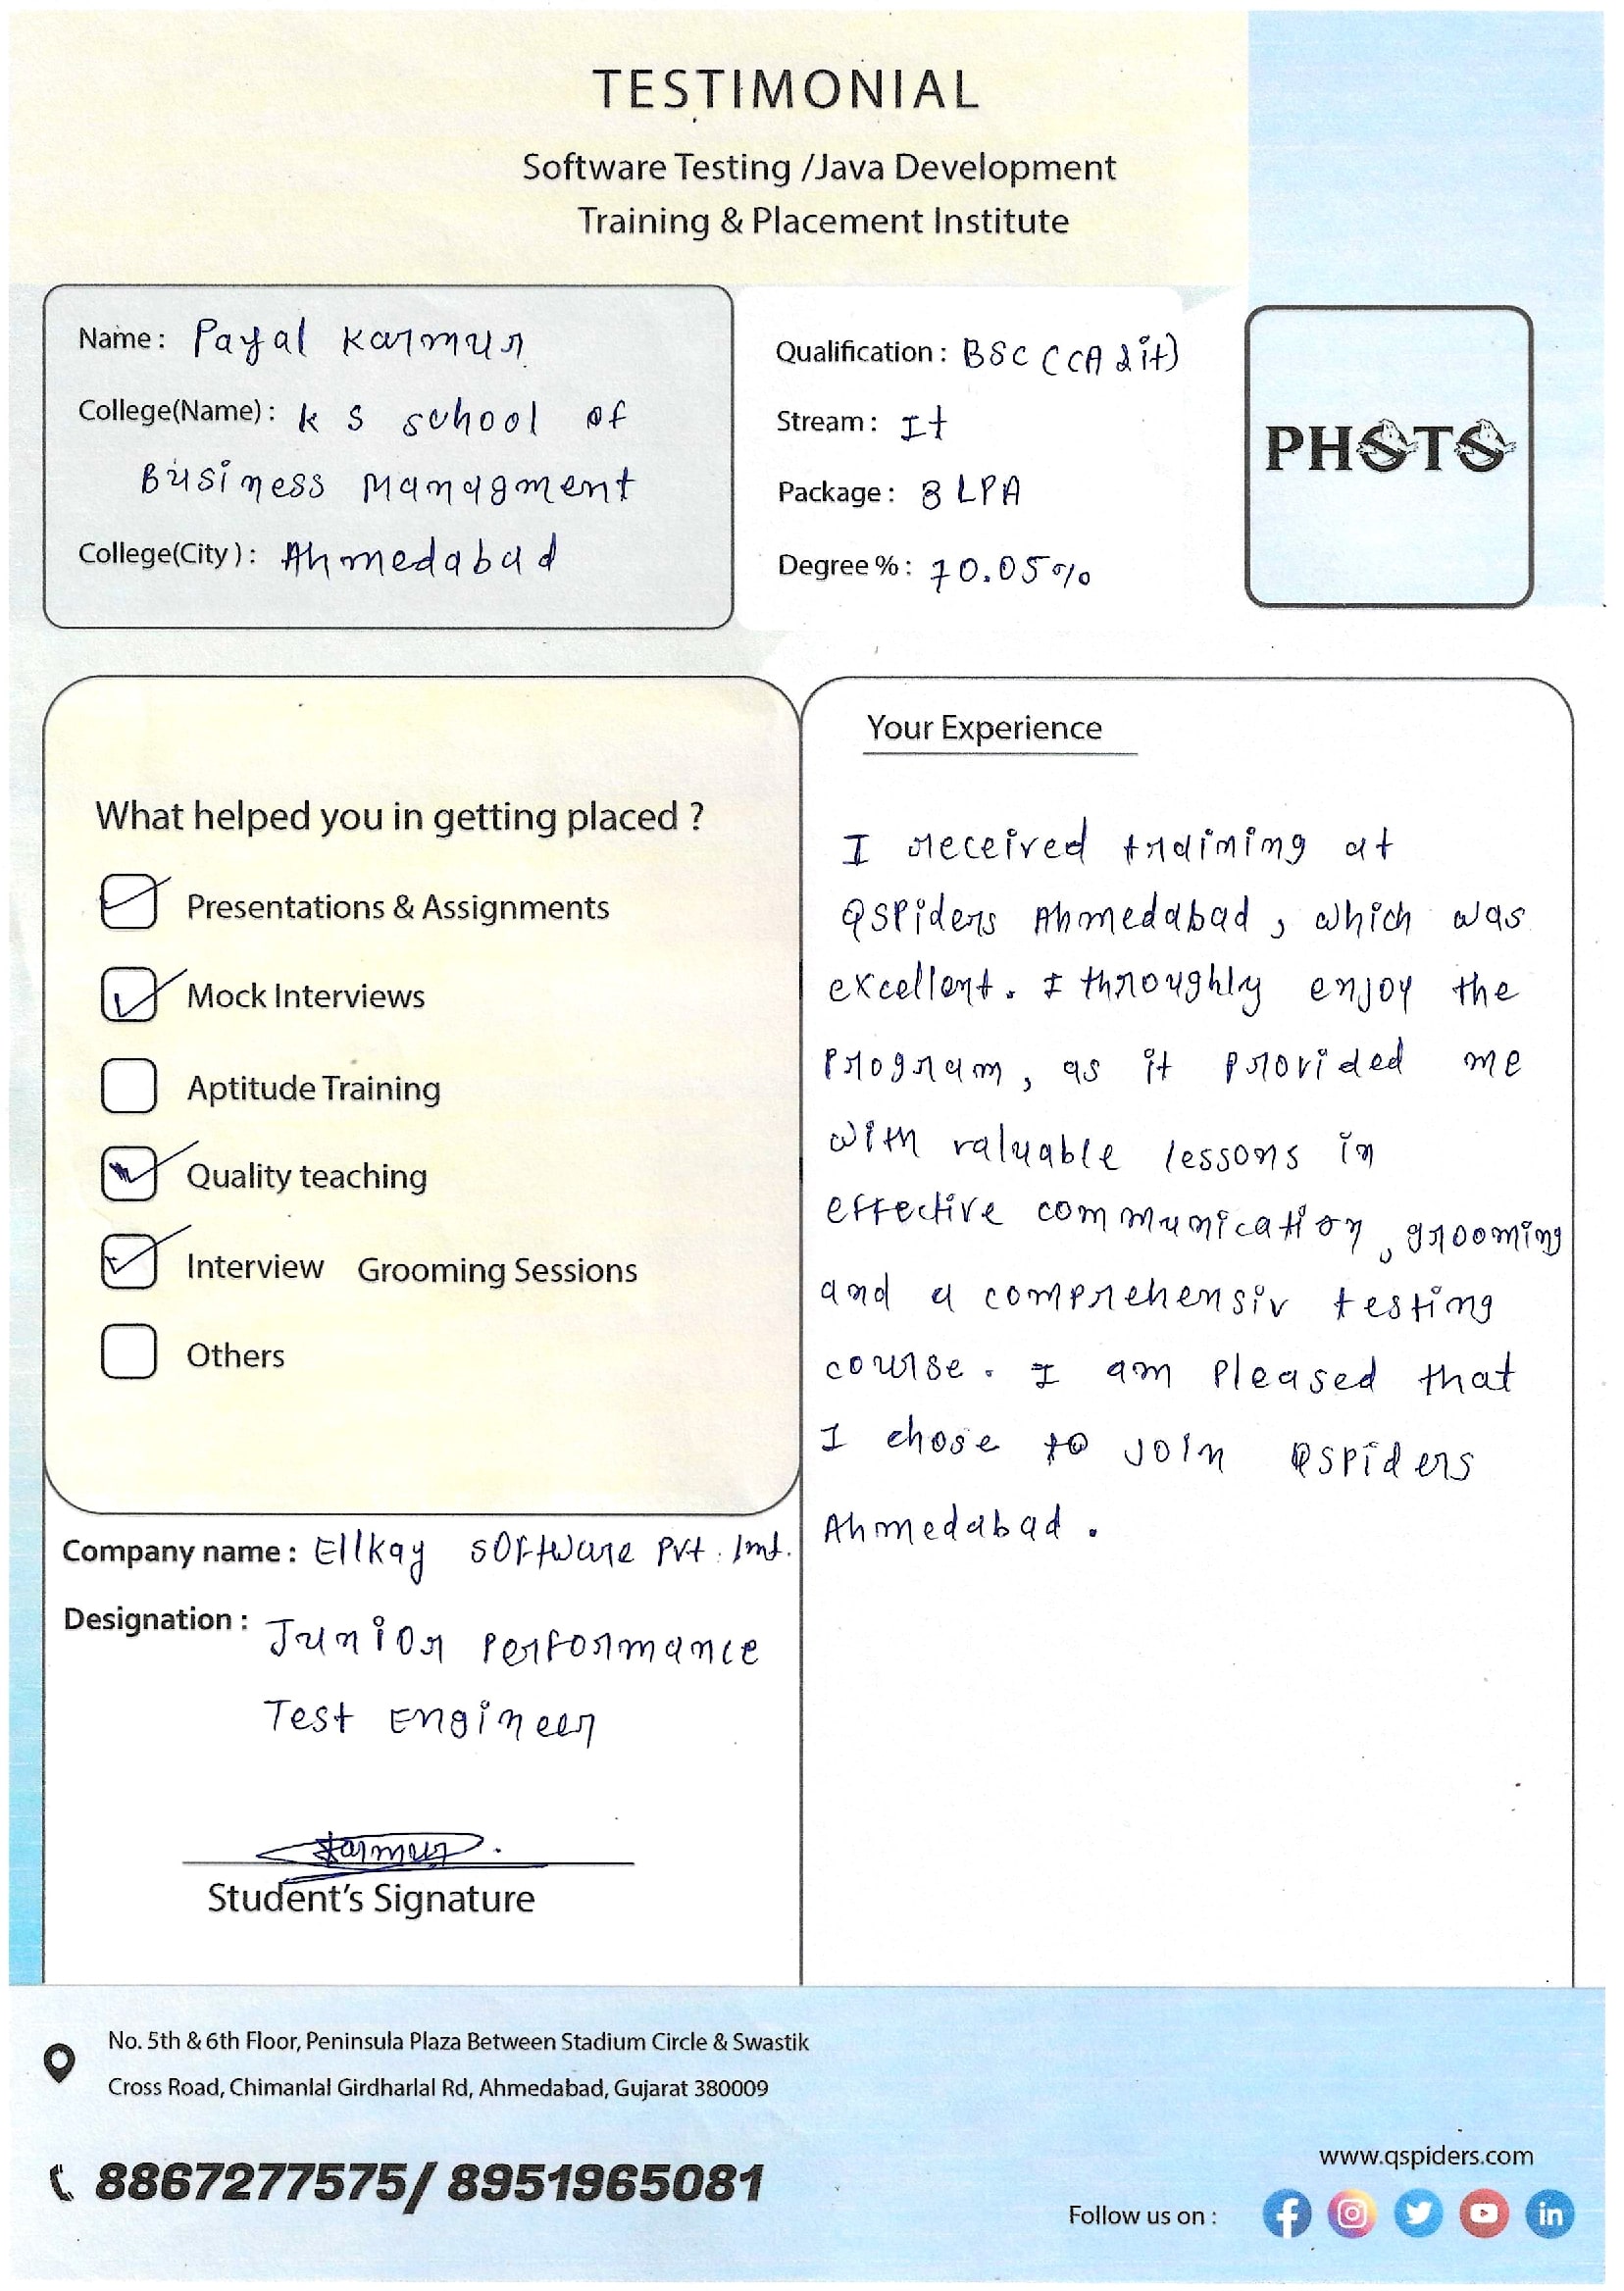 TESTIMONIAL
Software Testing /Java Development
Training & Placement Institute
Name : Payal Karmur
College(Name) : K S school of
Business Managment
College(City) : Ahmedabad
Qualification : BSC (CA & it)
Stream : It
Package : 3 LPA
Degree % : 70.05%
PHOTO
What helped you in getting placed ?
Presentations & Assignments
Mock Interviews
Aptitude Training
Quality teaching
Interview Grooming Sessions
Others
Company name : Ellkay software Pvt. lmt.
Designation : Junior Performance
Test Engineer
Karmur
Student's Signature
Your Experience
I received training at
QSpiders Ahmedabad, which was
excellent. I throughly enjoy the
Program, as it provided me
with valuable lessons in
effective communication, grooming
and a comprehensiv testing
course. I am Pleased that
I chose to join QSpiders
Ahmedabad.
No. 5th & 6th Floor, Peninsula Plaza Between Stadium Circle & Swastik
Cross Road, Chimanlal Girdharlal Rd, Ahmedabad, Gujarat 380009
8867277575/ 8951965081
www.qspiders.com
Follow us on :